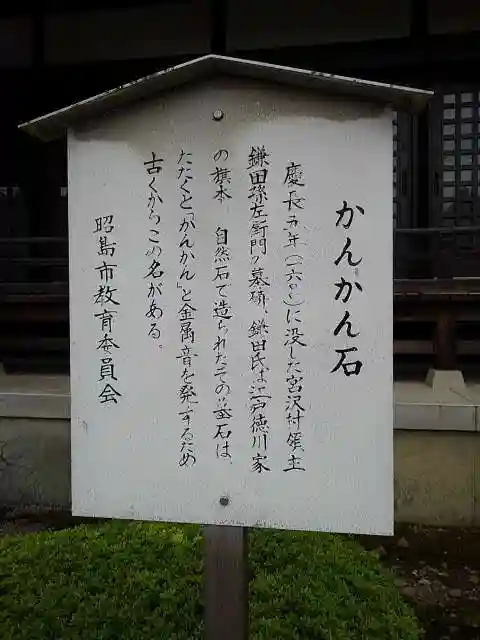 かんかん石
慶長五年(一六〇〇)に没した宮沢村領主
鎌田孫左衛門ノ墓碑、鎌田氏は江戸徳川家
の旗本。自然石で造られたその墓石は、
たたくと「かんかん」と金属音を発するため
古くからこの名がある。
昭島市教育委員会